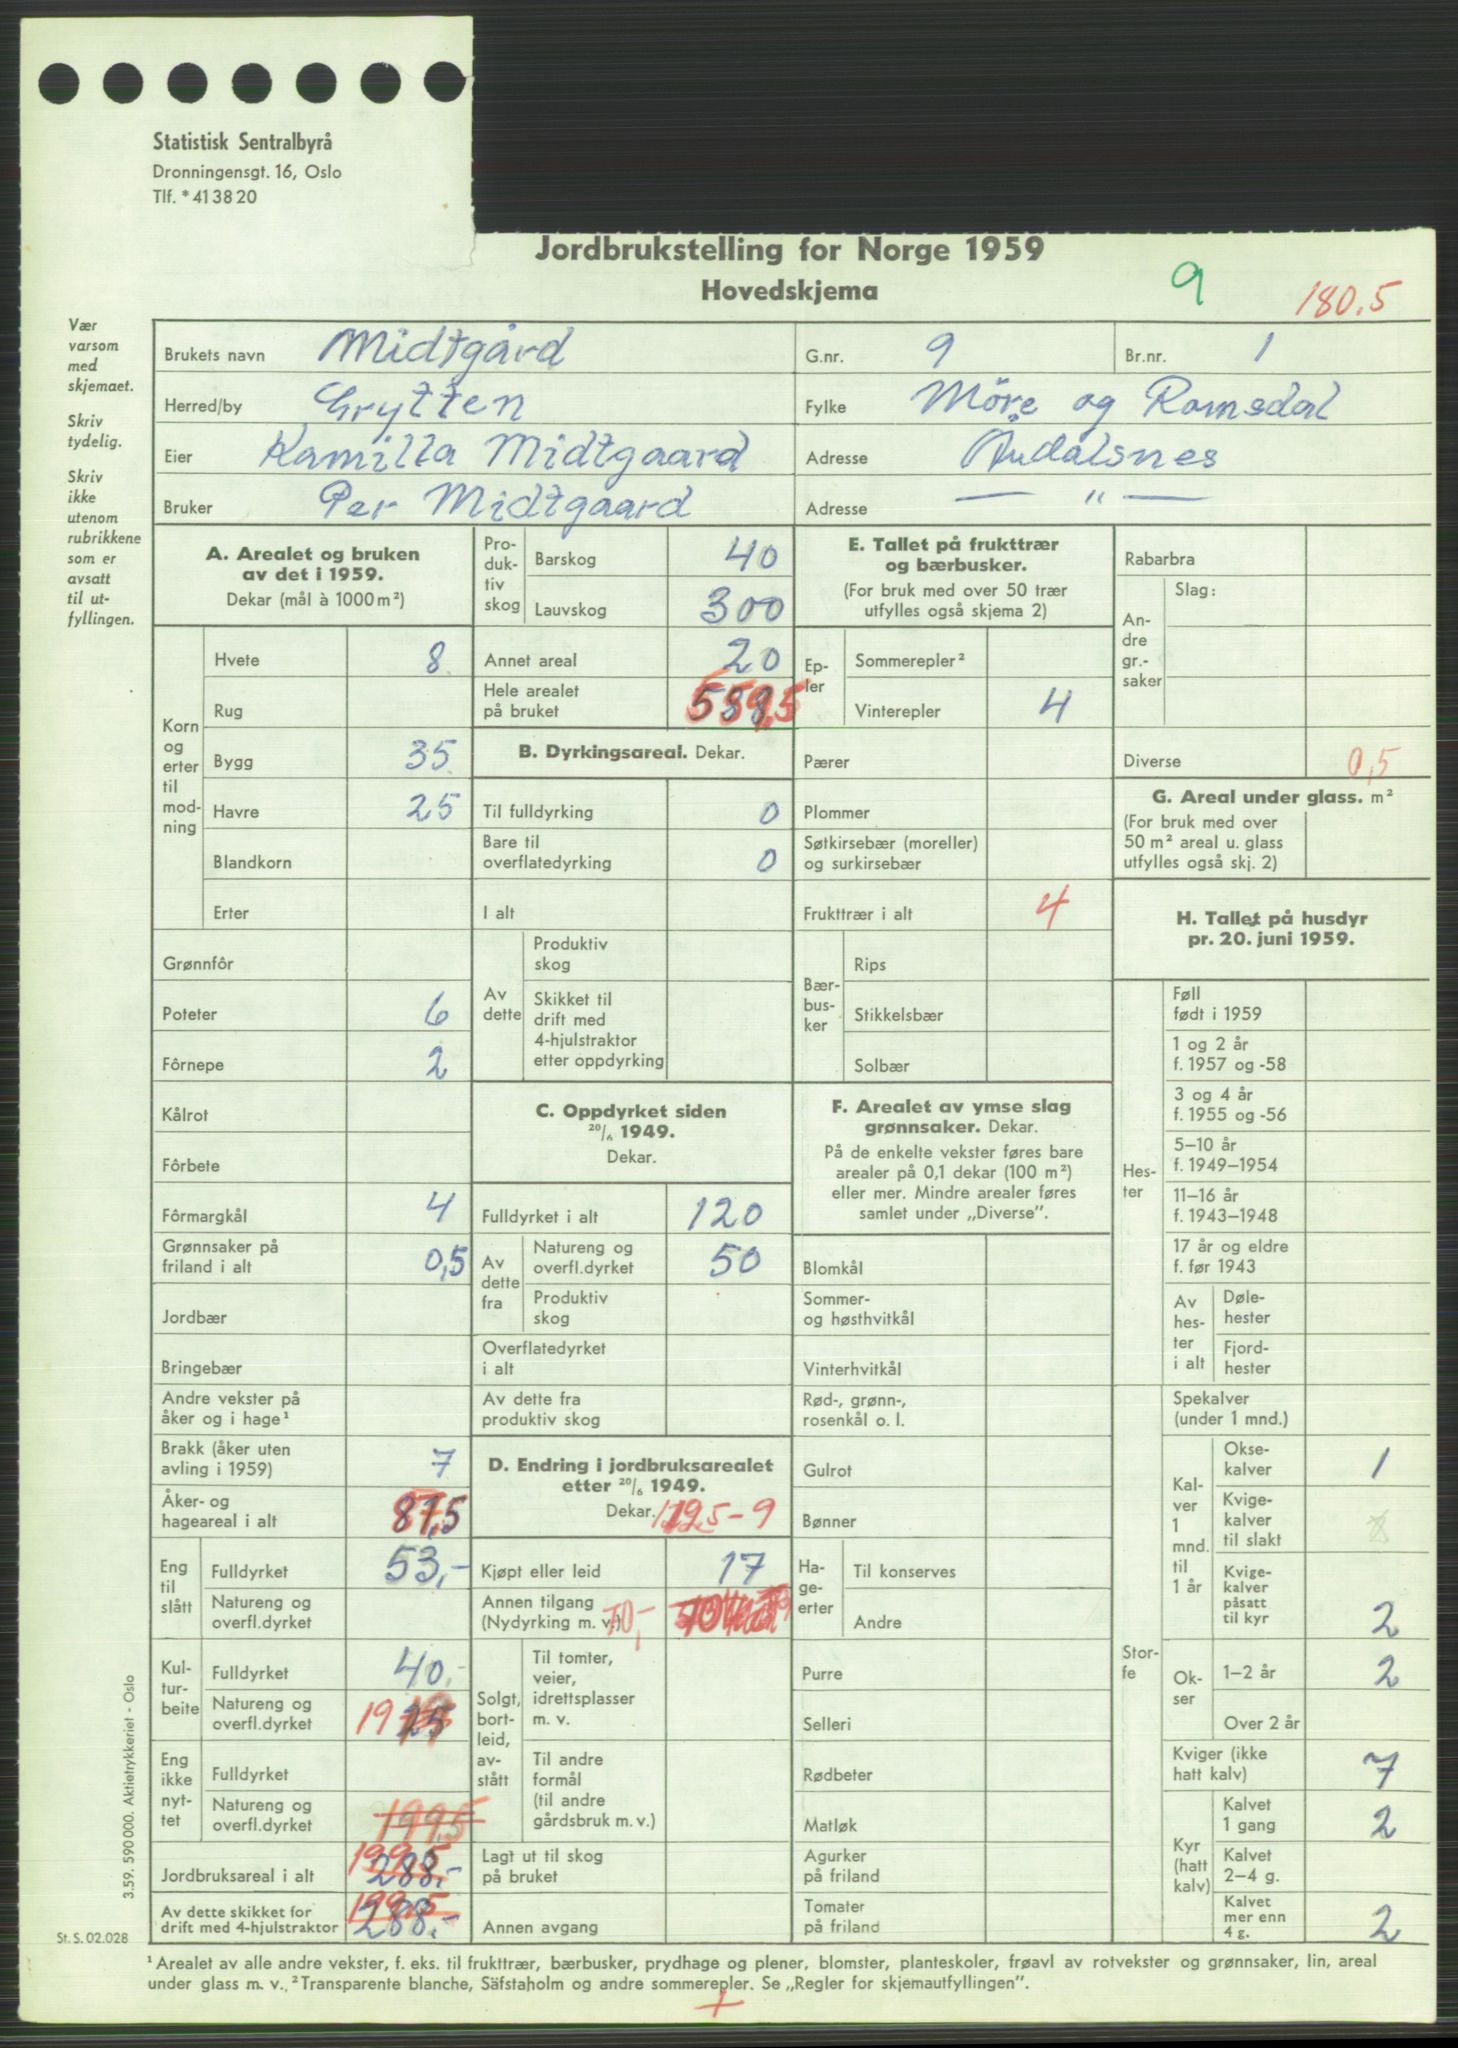 Statistisk Sentralbyrå
Dronningensgt. 16, Oslo
Tlf. * 41 38 20
Jordbrukstelling for Norge 1959
Hovedskjema
9
180.5
Vær
varsom
med
skjemaet.
Skriv
tydelig.
Skriv
ikke
utenom
rubrikkene
som er
avsatt
til ut-
fyllingen.
Brukets navn Midtgård G.nr. 9 Br.nr. 1
Herred/by Grytten Fylke Möre og Romsdal
Eier Kamilla Midtgaard Adresse Åndalsnes
Bruker Per Midtgaard Adresse — " —
A. Arealet og bruken
av det i 1959.
Dekar (mål à 1000 m²)
Korn
og
erter
til
mod-
ning
Hvete 8
Rug
Bygg 35
Havre 25
Blandkorn
Erter
Grønnfôr
Poteter 6
Fôrnepe 2
Kålrot
Fôrbete
Fôrmargkål 4
Grønnsaker på
friland i alt 0,5
Jordbær
Bringebær
Andre vekster på
åker og i hage¹
Brakk (åker uten
avling i 1959) 7
Åker- og
hageareal i alt 87,5
Eng
til
slått
Fulldyrket 53,-
Natureng og
overfl.dyrket
Kul-
tur-
beite
Fulldyrket 40.-
Natureng og
overfl.dyrket 19 25
Eng
ikke
nyt-
tet
Fulldyrket
Natureng og
overfl.dyrket 199,5
Jordbruksareal i alt 199,5 288.-
Av dette skikket for
drift med 4-hjulstraktor 199,5 288.-
Pro-
duk-
tiv
skog
Barskog 40
Lauvskog 300
Annet areal 20
Hele arealet
på bruket
B. Dyrkingsareal. Dekar.
Til fulldyrking 0
Bare til
overflatedyrking 0
I alt
Av
dette
Produktiv
skog
Skikket til
drift med
4-hjulstraktor
etter oppdyrking
C. Oppdyrket siden
20/6 1949.
Dekar.
Fulldyrket i alt 120
Av
dette
fra
Natureng og
overfl.dyrket 50
Produktiv
skog
Overflatedyrket
i alt
Av dette fra
produktiv skog
D. Endring i jordbruksarealet
etter 20/6 1949.
Dekar.
Kjøpt eller leid 17
Annen tilgang
(Nydyrking m. v.) 70,-
Solgt,
bort-
leid,
av-
stått
Til tomter,
veier,
idrettsplasser
m. v.
Til andre
formål
(til andre
gårdsbruk m. v.)
Lagt ut til skog
på bruket
Annen avgang
E. Tallet på frukttrær
og bærbusker.
(For bruk med over 50 trær
utfylles også skjema 2)
Ep-
ler
Sommerepler²
Vinterepler 4
Pærer
Plommer
Søtkirsebær (moreller)
og surkirsebær
Frukttrær i alt 4
Bær-
bus-
ker
Rips
Stikkelsbær
Solbær
F. Arealet av ymse slag
grønnsaker. Dekar.
På de enkelte vekster føres bare
arealer på 0,1 dekar (100 m²)
eller mer. Mindre arealer føres
samlet under „Diverse".
Blomkål
Sommer-
og høsthvitkål
Vinterhvitkål
Rød-, grønn-,
rosenkål o. l.
Gulrot
Bønner
Ha-
ge-
erter
Til konserves
Andre
Purre
Selleri
Rødbeter
Matløk
Agurker
på friland
Tomater
på friland
Rabarbra
An-
dre
gr.-
saker
Slag:
Diverse 0,5
G. Areal under glass. m²
(For bruk med over
50 m² areal u. glass
utfylles også skj. 2)
H. Tallet på husdyr
pr. 20. juni 1959.
Hes-
ter
Føll
født i 1959
1 og 2 år
f. 1957 og -58
3 og 4 år
f. 1955 og -56
5–10 år
f. 1949–1954
11–16 år
f. 1943–1948
17 år og eldre
f. før 1943
Av
hes-
ter
i alt
Døle-
hester
Fjord-
hester
Stor-
fe
Spekalver
(under 1 mnd.)
Kal-
ver
1
mnd.
til
1 år
Okse-
kalver 1
Kvige-
kalver
til slakt
Kvige-
kalver
påsatt
til kyr 2
Ok-
ser
1–2 år 2
Over 2 år
Kviger (ikke
hatt kalv) 7
Kyr
(hatt
kalv)
Kalvet
1 gang 2
Kalvet
2–4 g.
Kalvet
mer enn
4 g. 2
3.59. 590 000. Aktietrykkeriet - Oslo
St. S. 02.028
¹ Arealet av alle andre vekster, f. eks. til frukttrær, bærbusker, prydhage og plener, blomster, planteskoler, frøavl av rotvekster og grønnsaker, lin, areal
under glass m. v. ² Transparente blanche, Säfstaholm og andre sommerepler. Se „Regler for skjemautfyllingen".
+